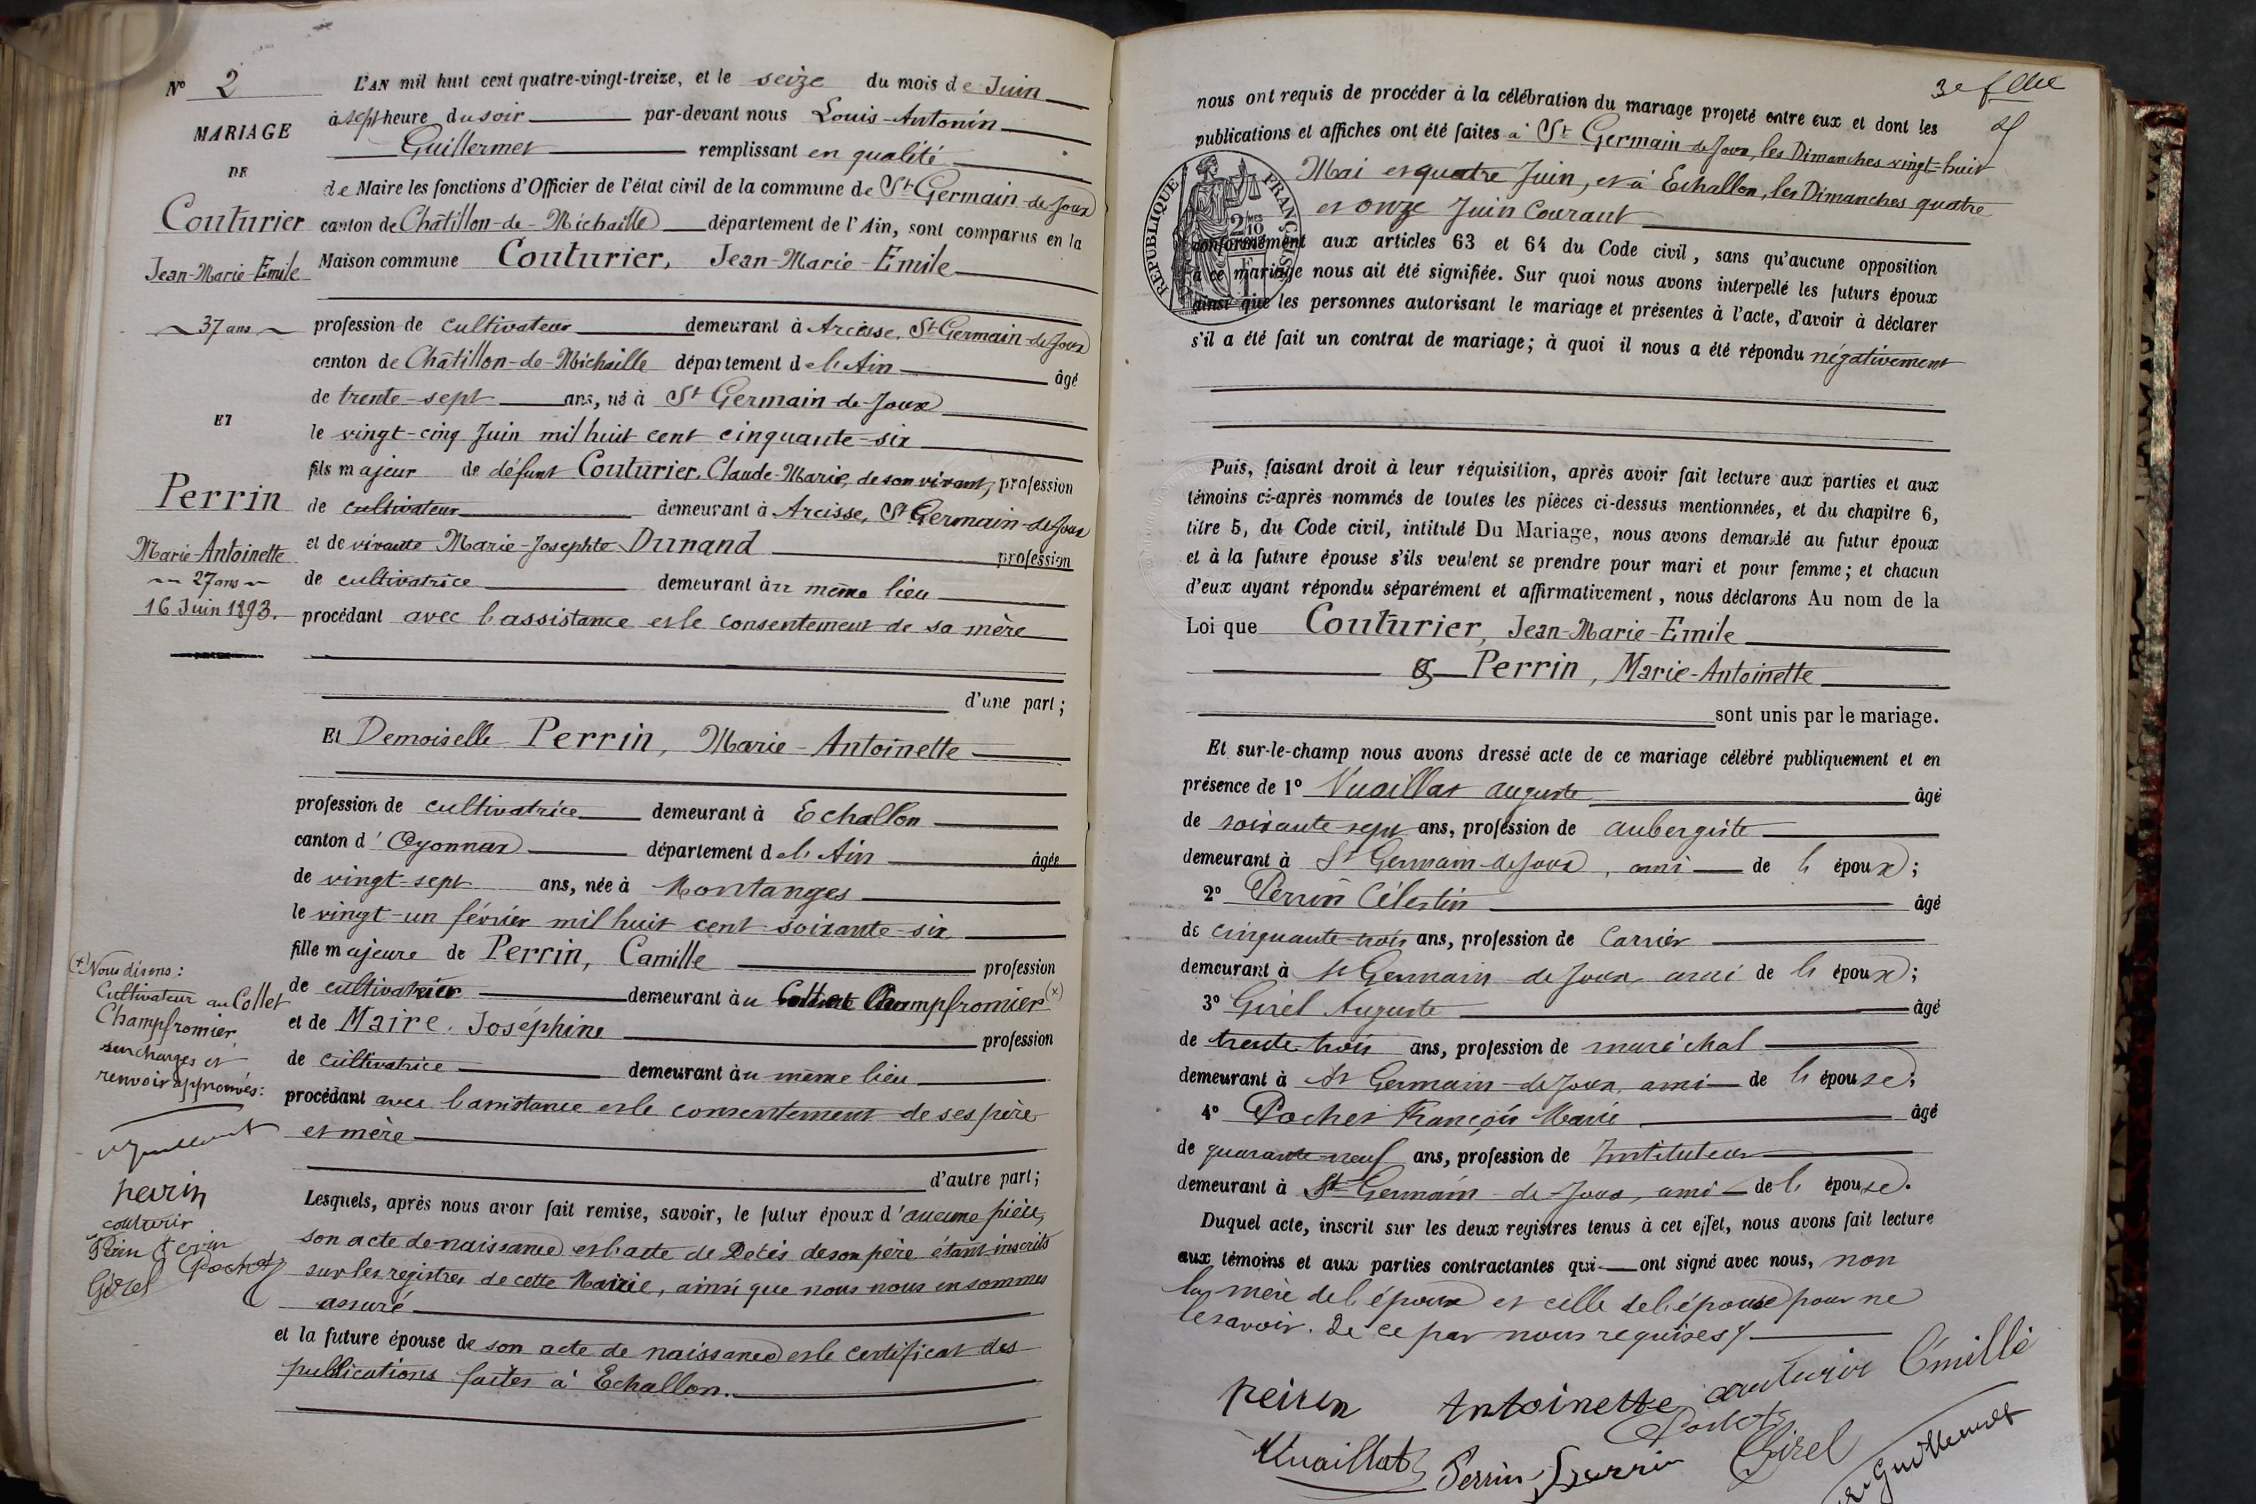 N° 2
MARIAGE
DE
Couturier
Jean-Marie-Emile
37 ans
ET
Perrin
Marie-Antoinette
27 ans
16 Juin 1893.
(+) Nous disons :
Cultivateur au Collet
Champfromier,
surcharges et
renvoir approuvés :
perrin
couturir
Girel Pochet
L'AN mil huit cent quatre-vingt-treize, et le seize du mois de Juin
à sept heure du soir par-devant nous Louis-Antonin
Guillermet remplissant en qualité
de Maire les fonctions d'Officier de l'état civil de la commune de St Germain-de-Joux
canton de Châtillon-de-Michaille département de l'Ain, sont comparus en la
Maison commune Couturier, Jean-Marie-Emile
profession de cultivateur demeurant à Arcisse, St Germain-de-Joux
canton de Châtillon-de-Michaille département de l'Ain âgé
de trente-sept ans, né à St Germain-de-Joux
le vingt-cinq Juin mil huit cent cinquante-six
fils majeur de défunt Couturier, Claude-Marie, de son vivant, profession
de cultivateur demeurant à Arcisse, St Germain-de-Joux
et de vivante Marie-Josephte Dunand profession
de cultivatrice demeurant au même lieu
procédant avec l'assistance et le consentement de sa mère
d'une part ;
Et Demoiselle Perrin, Marie-Antoinette
profession de cultivatrice demeurant à Echallon
canton d'Oyonnax département de l'Ain âgée
de vingt-sept ans, née à Montanges
le vingt-un février mil huit cent soixante-six
fille majeure de Perrin, Camille profession
de cultivateur demeurant au Collet Champfromier (x)
et de Maire, Joséphine profession
de cultivatrice demeurant au même lieu
procédant avec l'assistance et le consentement de ses père
et mère
d'autre part ;
Lesquels, après nous avoir fait remise, savoir, le futur époux d'aucune pièce,
son acte de naissance et l'acte de Décès de son père étant inscrits
sur les registres de cette Mairie, ainsi que nous nous en sommes
assuré
et la future épouse de son acte de naissance et le certificat des
publications faites à Echallon.
3e fllet
nous ont requis de procéder à la célébration du mariage projeté entre eux et dont les
publications et affiches ont été faites à St Germain-de-Joux, les Dimanches vingt-huit
Mai et quatre Juin, et à Echallon, les Dimanches quatre
et onze Juin Courant
RÉPUBLIQUE FRANÇAISE
2/10
conformément aux articles 63 et 64 du Code civil, sans qu'aucune opposition
à ce mariage nous ait été signifiée. Sur quoi nous avons interpellé les futurs époux
ainsi que les personnes autorisant le mariage et présentes à l'acte, d'avoir à déclarer
s'il a été fait un contrat de mariage ; à quoi il nous a été répondu négativement
Puis, faisant droit à leur réquisition, après avoir fait lecture aux parties et aux
témoins ci-après nommés de toutes les pièces ci-dessus mentionnées, et du chapitre 6,
titre 5, du Code civil, intitulé Du Mariage, nous avons demandé au futur époux
et à la future épouse s'ils veulent se prendre pour mari et pour femme ; et chacun
d'eux ayant répondu séparément et affirmativement, nous déclarons Au nom de la
Loi que Couturier, Jean-Marie-Emile
& Perrin, Marie-Antoinette
sont unis par le mariage.
Et sur-le-champ nous avons dressé acte de ce mariage célébré publiquement et en
présence de 1° Vuaillat Auguste âgé
de soixante-sept ans, profession de aubergiste
demeurant à St Germain-de-Joux, ami de l'époux ;
2° Perrin Célestin âgé
de cinquante-trois ans, profession de Carrier
demeurant à St Germain-de-Joux ami de l'époux ;
3° Girel Auguste âgé
de trente-trois ans, profession de maréchal
demeurant à St Germain-de-Joux, ami de l'épouse ;
4° Pochet François Marie âgé
de quarante-neuf ans, profession de Instituteur
demeurant à St Germain-de-Joux, ami de l'épouse.
Duquel acte, inscrit sur les deux registres tenus à cet effet, nous avons fait lecture
aux témoins et aux parties contractantes qui ont signé avec nous, non
la mère de l'époux et celle de l'épouse pour ne
le savoir. De ce par nous requises
perrin Antoinette couturier Emille
Pochet
Vuaillat Perrin perrin Girel Guillermet